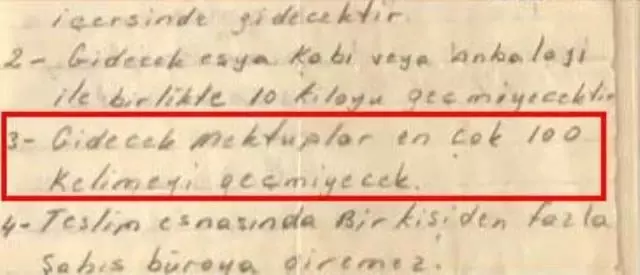 içersinde gidecektir.
2- Gidecek eşya Kabi veya anbalaji
ile birlikte 10 Kiloyu geçmiyecektir
3- Gidecek mektuplar en çok 100
Kelimeyi geçmiyecek.
4- Teslim esnasında Bir kişiden fazla
Şahıs büroya giremez.